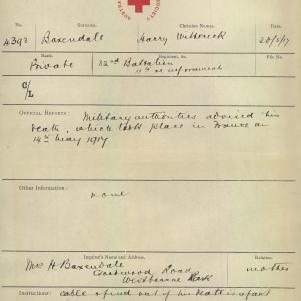 No. Surname. Christian Names. Date.
4393 Baxendale Harry 20/5/17
Rank. Regiment, &c. File No.
Private 32nd Battalion
11th reinforcements
C/L
OFFICIAL REPORTS: Military authorities advised his
death, which took place in France on
14th May 1917
Other Information:
none
Inquirer's Name and Address. Relation.
Mrs H Baxendale mother
Road
Westbourne Park
Instructions: cable & find out if his death is a fact